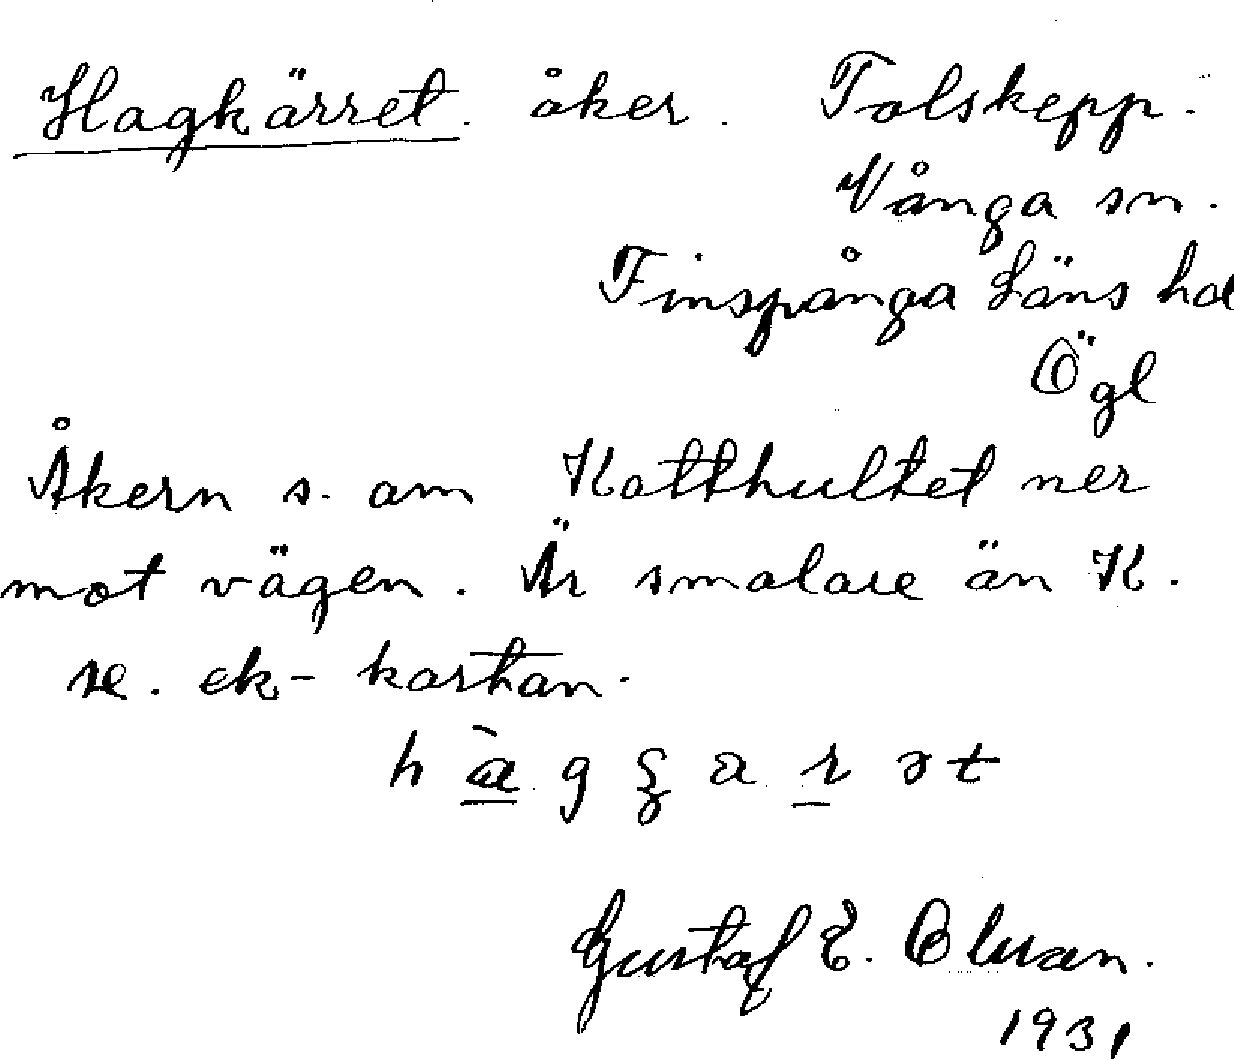 Hagkärret. åker. Tolskepp.
Vånga sn.
Finspånga Läns hd
Ögl
Åkern s. om Katthultet ner
mot vägen. Är smalare än K.
se. ek-kartan.
1931